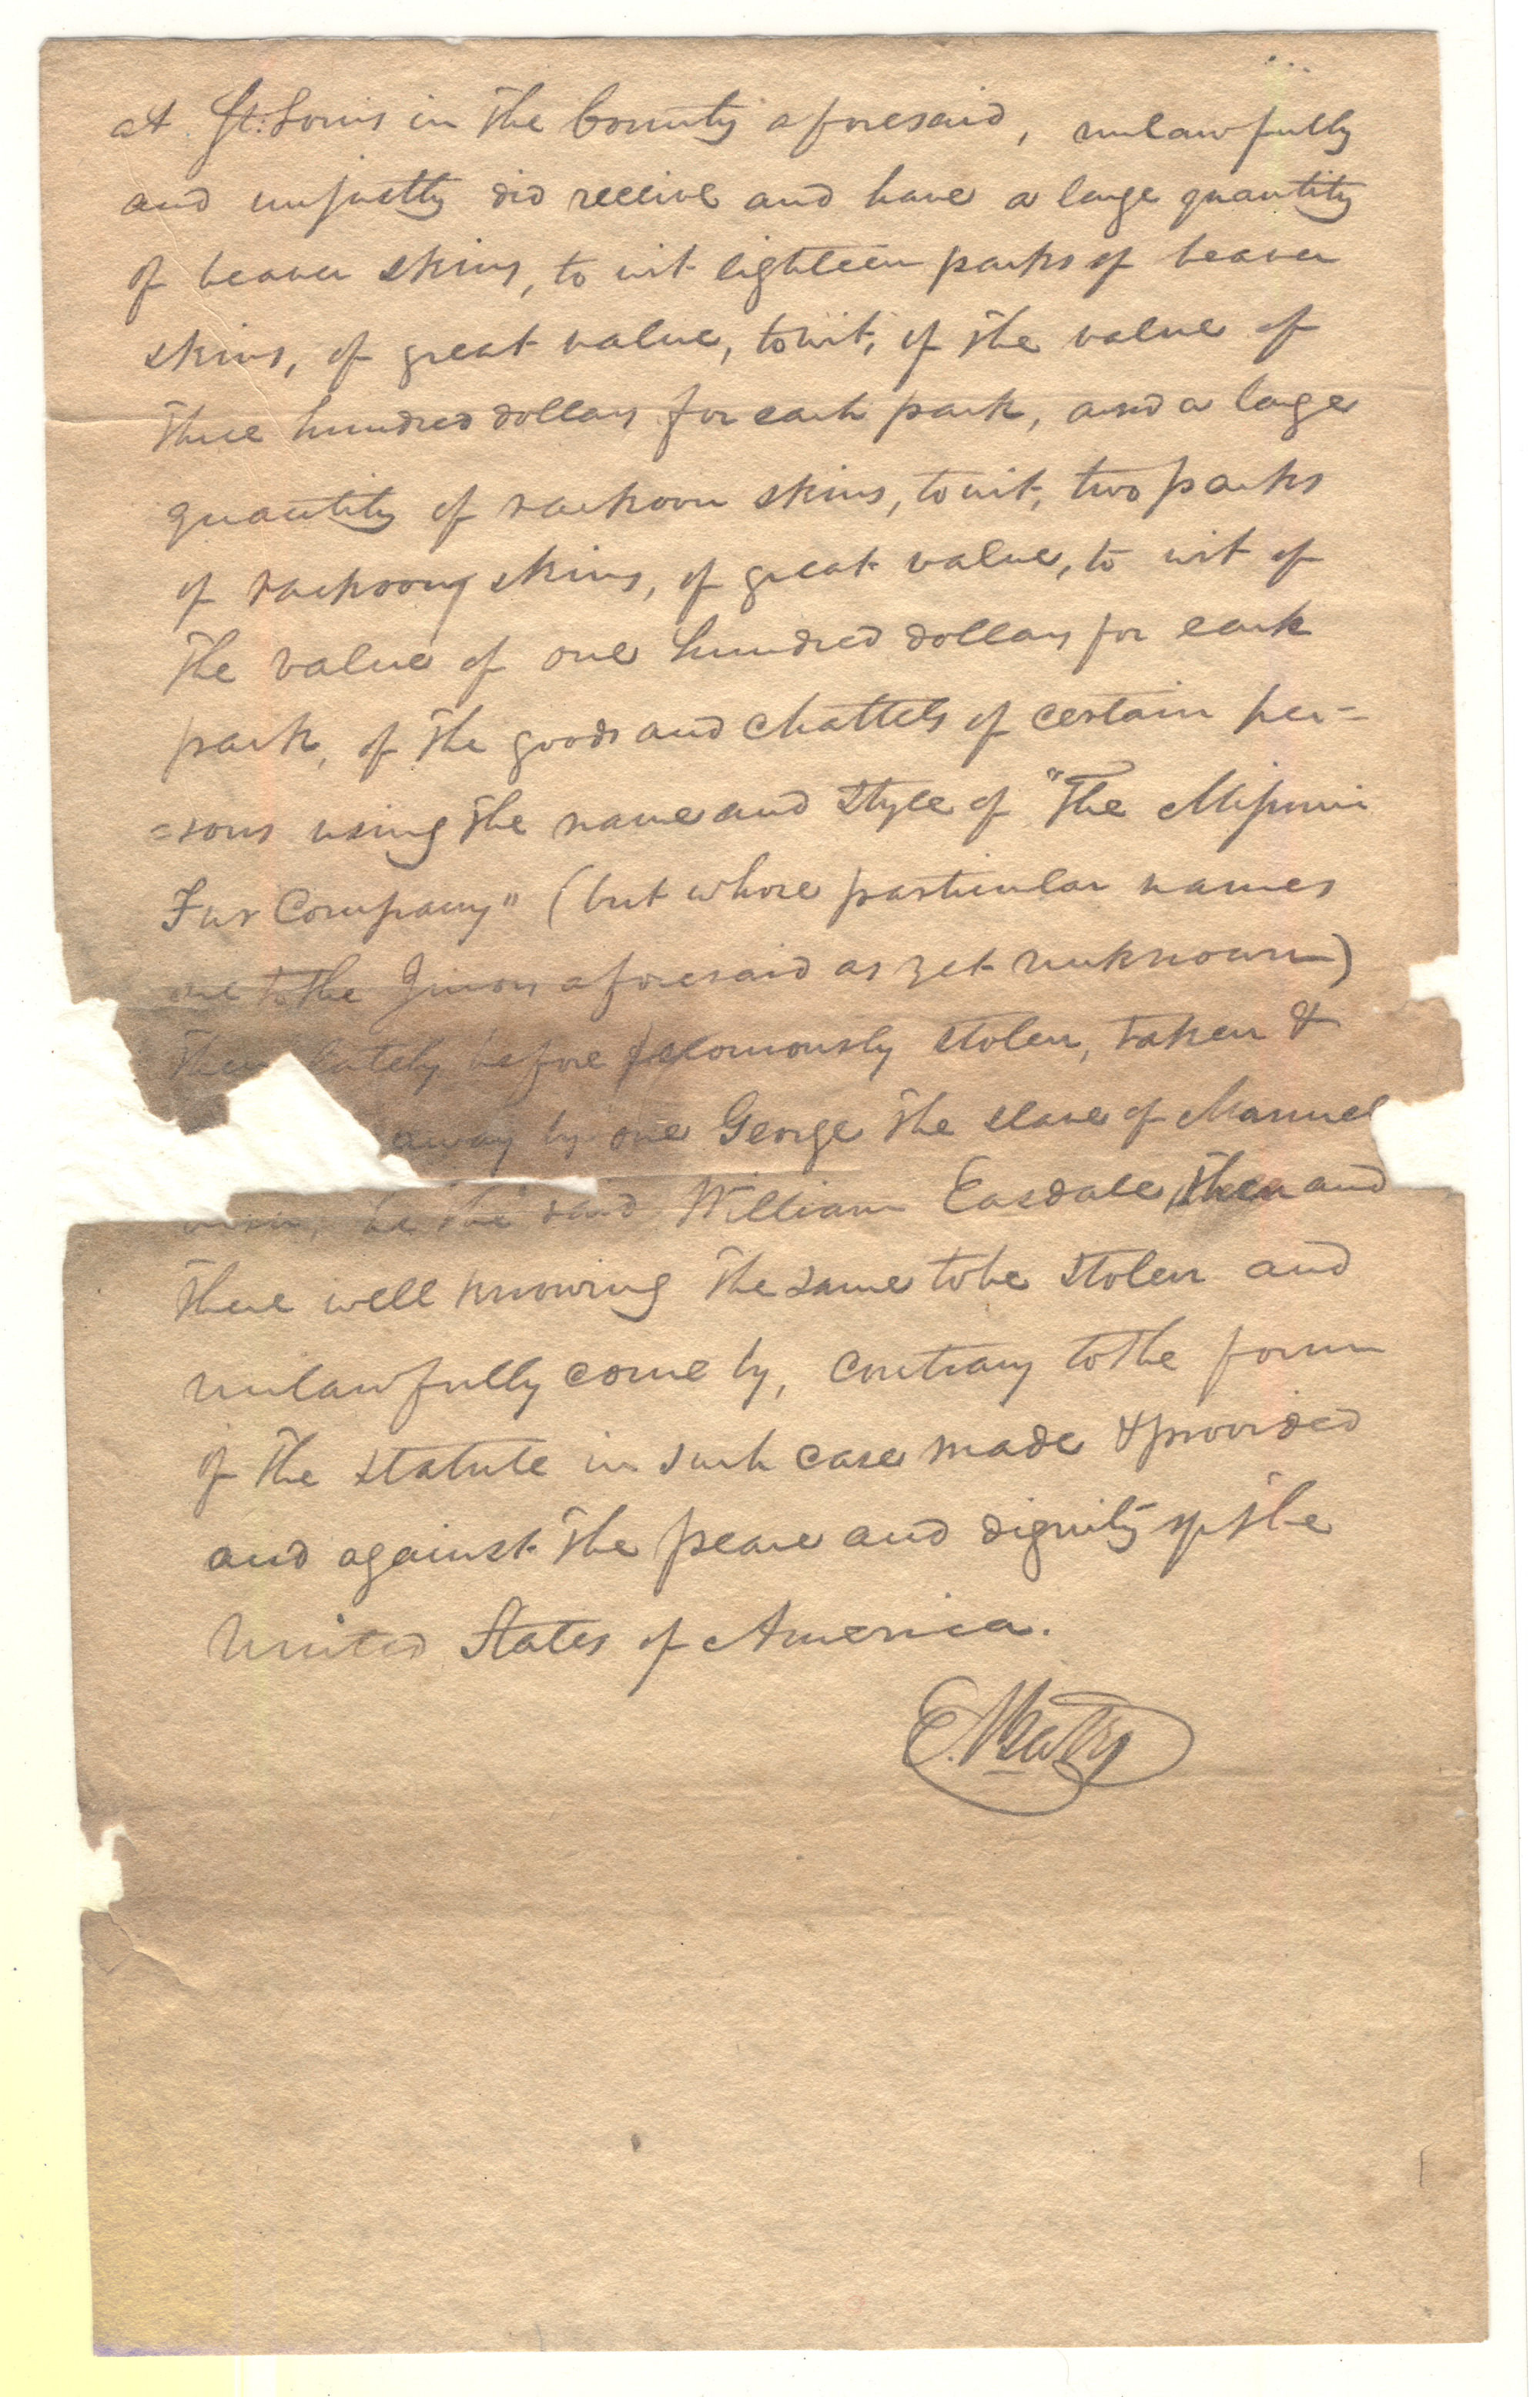 at St. Louis in the County aforesaid, unlawfully
and unjustly did receive and have a large quantity
of beaver skins, to wit eighteen packs of beaver
skins, of great value, towit, of the value of
three hundred dollars for each pack, and a large
quantity of rackoon skins, towit, two packs
of rackoong skins, of great value, to wit of
the value of one hundred dollars for each
pack, of the goods and chattels of certain per=
=sons using the name and style of "The Missouri
Fur Company" (but whose particular names
are to the Jurors aforesaid as yet unknown)
then lately before feloniously stolen, taken &
away by one George the slave of Manuel
he the said William Easdale, then and
there well knowing the same to be stolen and
unlawfully come by, contrary to the form
of the statute in such case made & provided
and against the peace and dignity of the
United States of America.